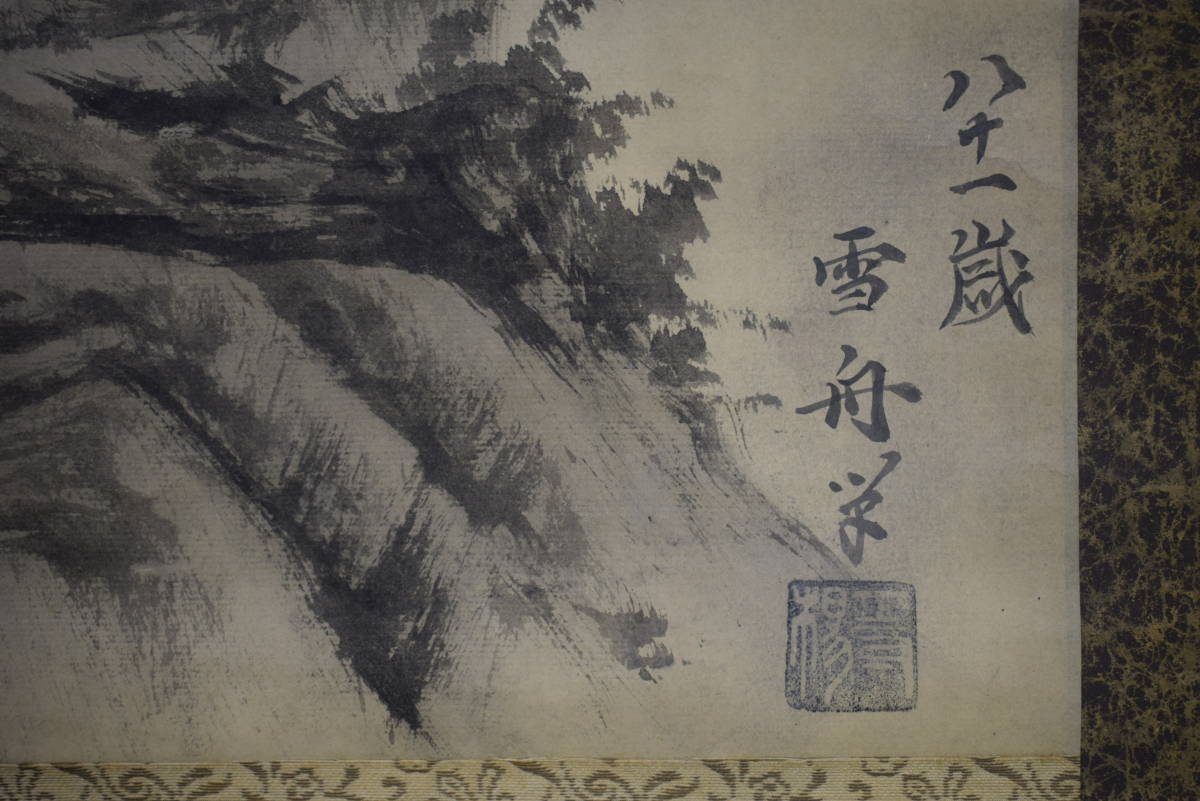 八十一歳
雪舟筆